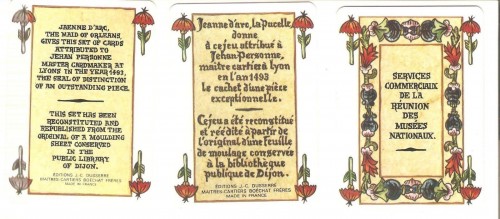 JAENNE D'ARC,
THE MAID OF ORLEANS,
GIVES THIS SET OF CARDS
ATTRIBUTED TO
JEHAN PERSONNE
MASTER CARDMAKER AT
LYONS IN THE YEAR 1493,
THE SEAL OF DISTINCTION
OF AN OUTSTANDING PIECE.
THIS SET HAS BEEN
RECONSTITUTED AND
REPUBLISHED FROM THE
ORIGINAL OF A MOULDING
SHEET CONSERVED
IN THE
PUBLIC LIBRARY
OF DIJON.
ÉDITIONS J.-C. DUSSERRE
MAITRES-CARTIERS BOECHAT FRÈRES
MADE IN FRANCE
Jeanne d'arc, la pucelle,
donne
à ce jeu attribué à
Jehan Personne,
maitre cartier à Lyon
en l'an 1493
le cachet d'une pièce
exceptionnelle.
Ce jeu a été reconstitué
et réédité à partir de
l'original d'une feuille
de moulage conservée
à la bibliothèque
publique de Dijon.
ÉDITIONS J.-C. DUSSERRE
MAITRES-CARTIERS BOECHAT FRÈRES
MADE IN FRANCE
SERVICES
COMMERCIAUX
DE LA
RÉUNION
DES
MUSÉES
NATIONAUX.